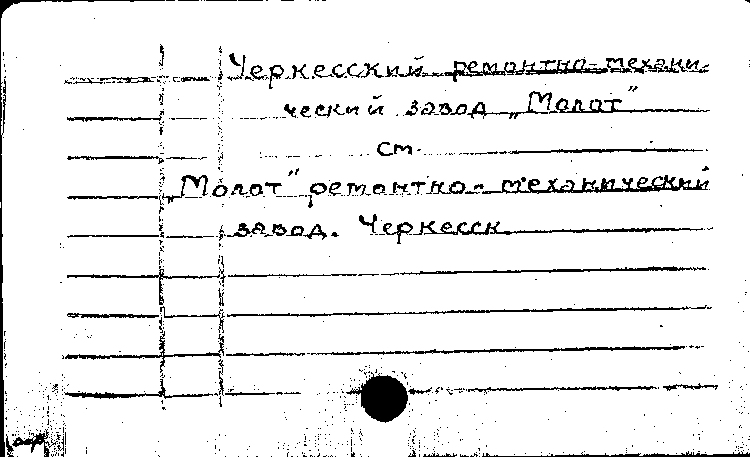 Черкесский ремонтно-механи-
ческий завод „Молот"
см.
„Молот" ремонтно-механический
завод. Черкесск.